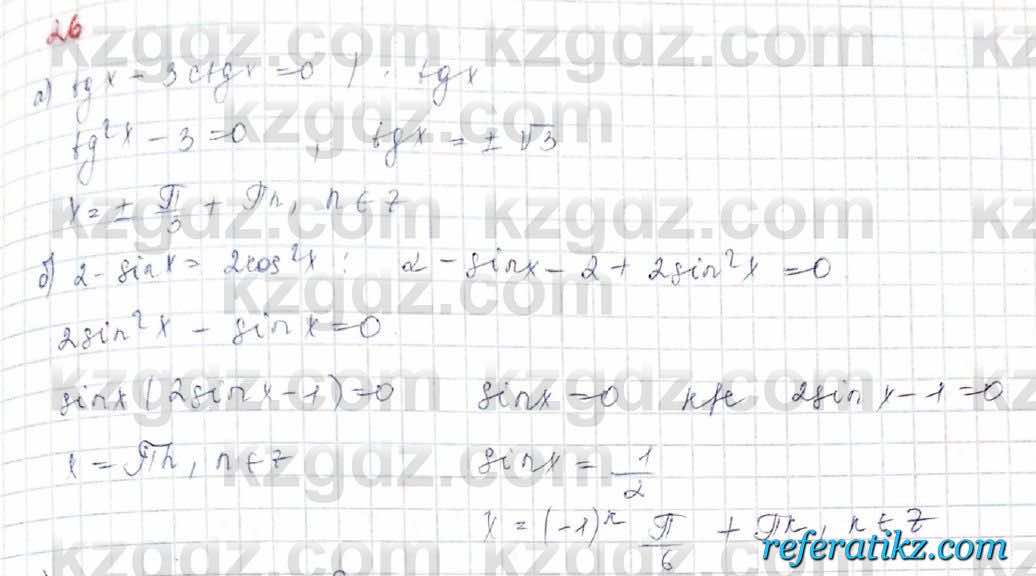 26
а) tgx - 3ctgx = 0 | · tgx
tg²x - 3 = 0, tgx = ± √3
x = ± π/3 + πn, n ∈ z
б) 2 - sinx = 2cos²x; 2 - sinx - 2 + 2sin²x = 0
2sin²x - sinx = 0
sinx(2sinx - 1) = 0 sinx = 0 или 2sinx - 1 = 0
x = πn, n ∈ z sinx = 1/2
x = (-1)ⁿ π/6 + πn, n ∈ z
kzgdz.com
referatikz.com